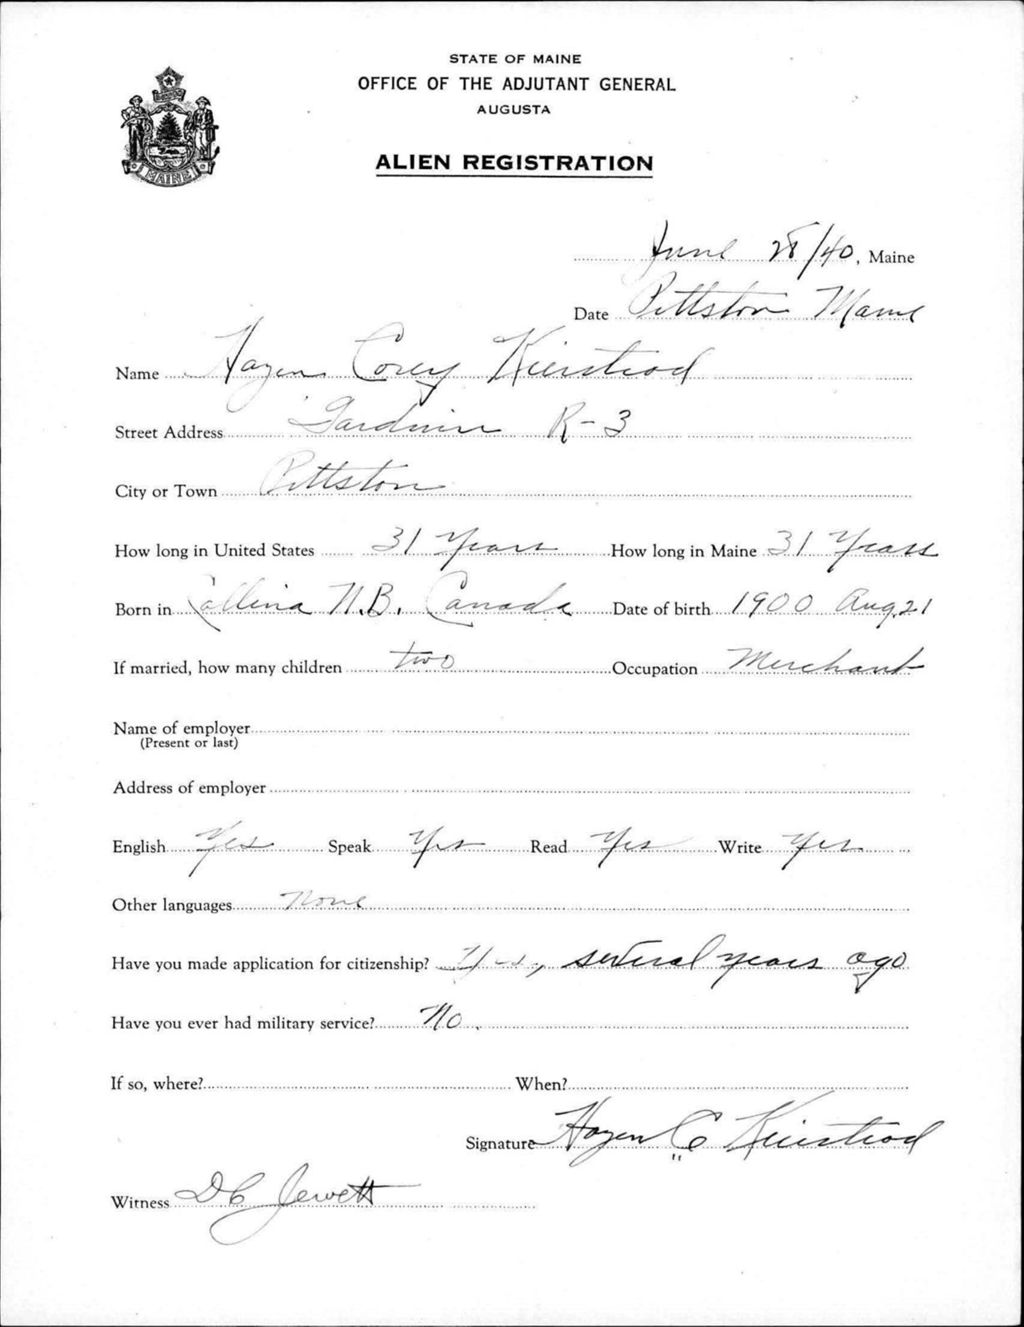 STATE OF MAINE
OFFICE OF THE ADJUTANT GENERAL
AUGUSTA
MAINE
ALIEN REGISTRATION
June 28/40, Maine
Date Pittston Maine
Name Hazen Corey Kierstead
Street Address Gardiner R-3
City or Town Pittston
How long in United States 31 Years How long in Maine 31 Years
Born in Collina N.B. Canada Date of birth 1900 Aug. 21
If married, how many children two Occupation Merchant
Name of employer
(Present or last)
Address of employer
English Yes Speak Yes Read Yes Write Yes
Other languages None
Have you made application for citizenship? Yes, several years ago
Have you ever had military service? No.
If so, where? When?
Signature Hazen C Kierstead
Witness D C Jewett